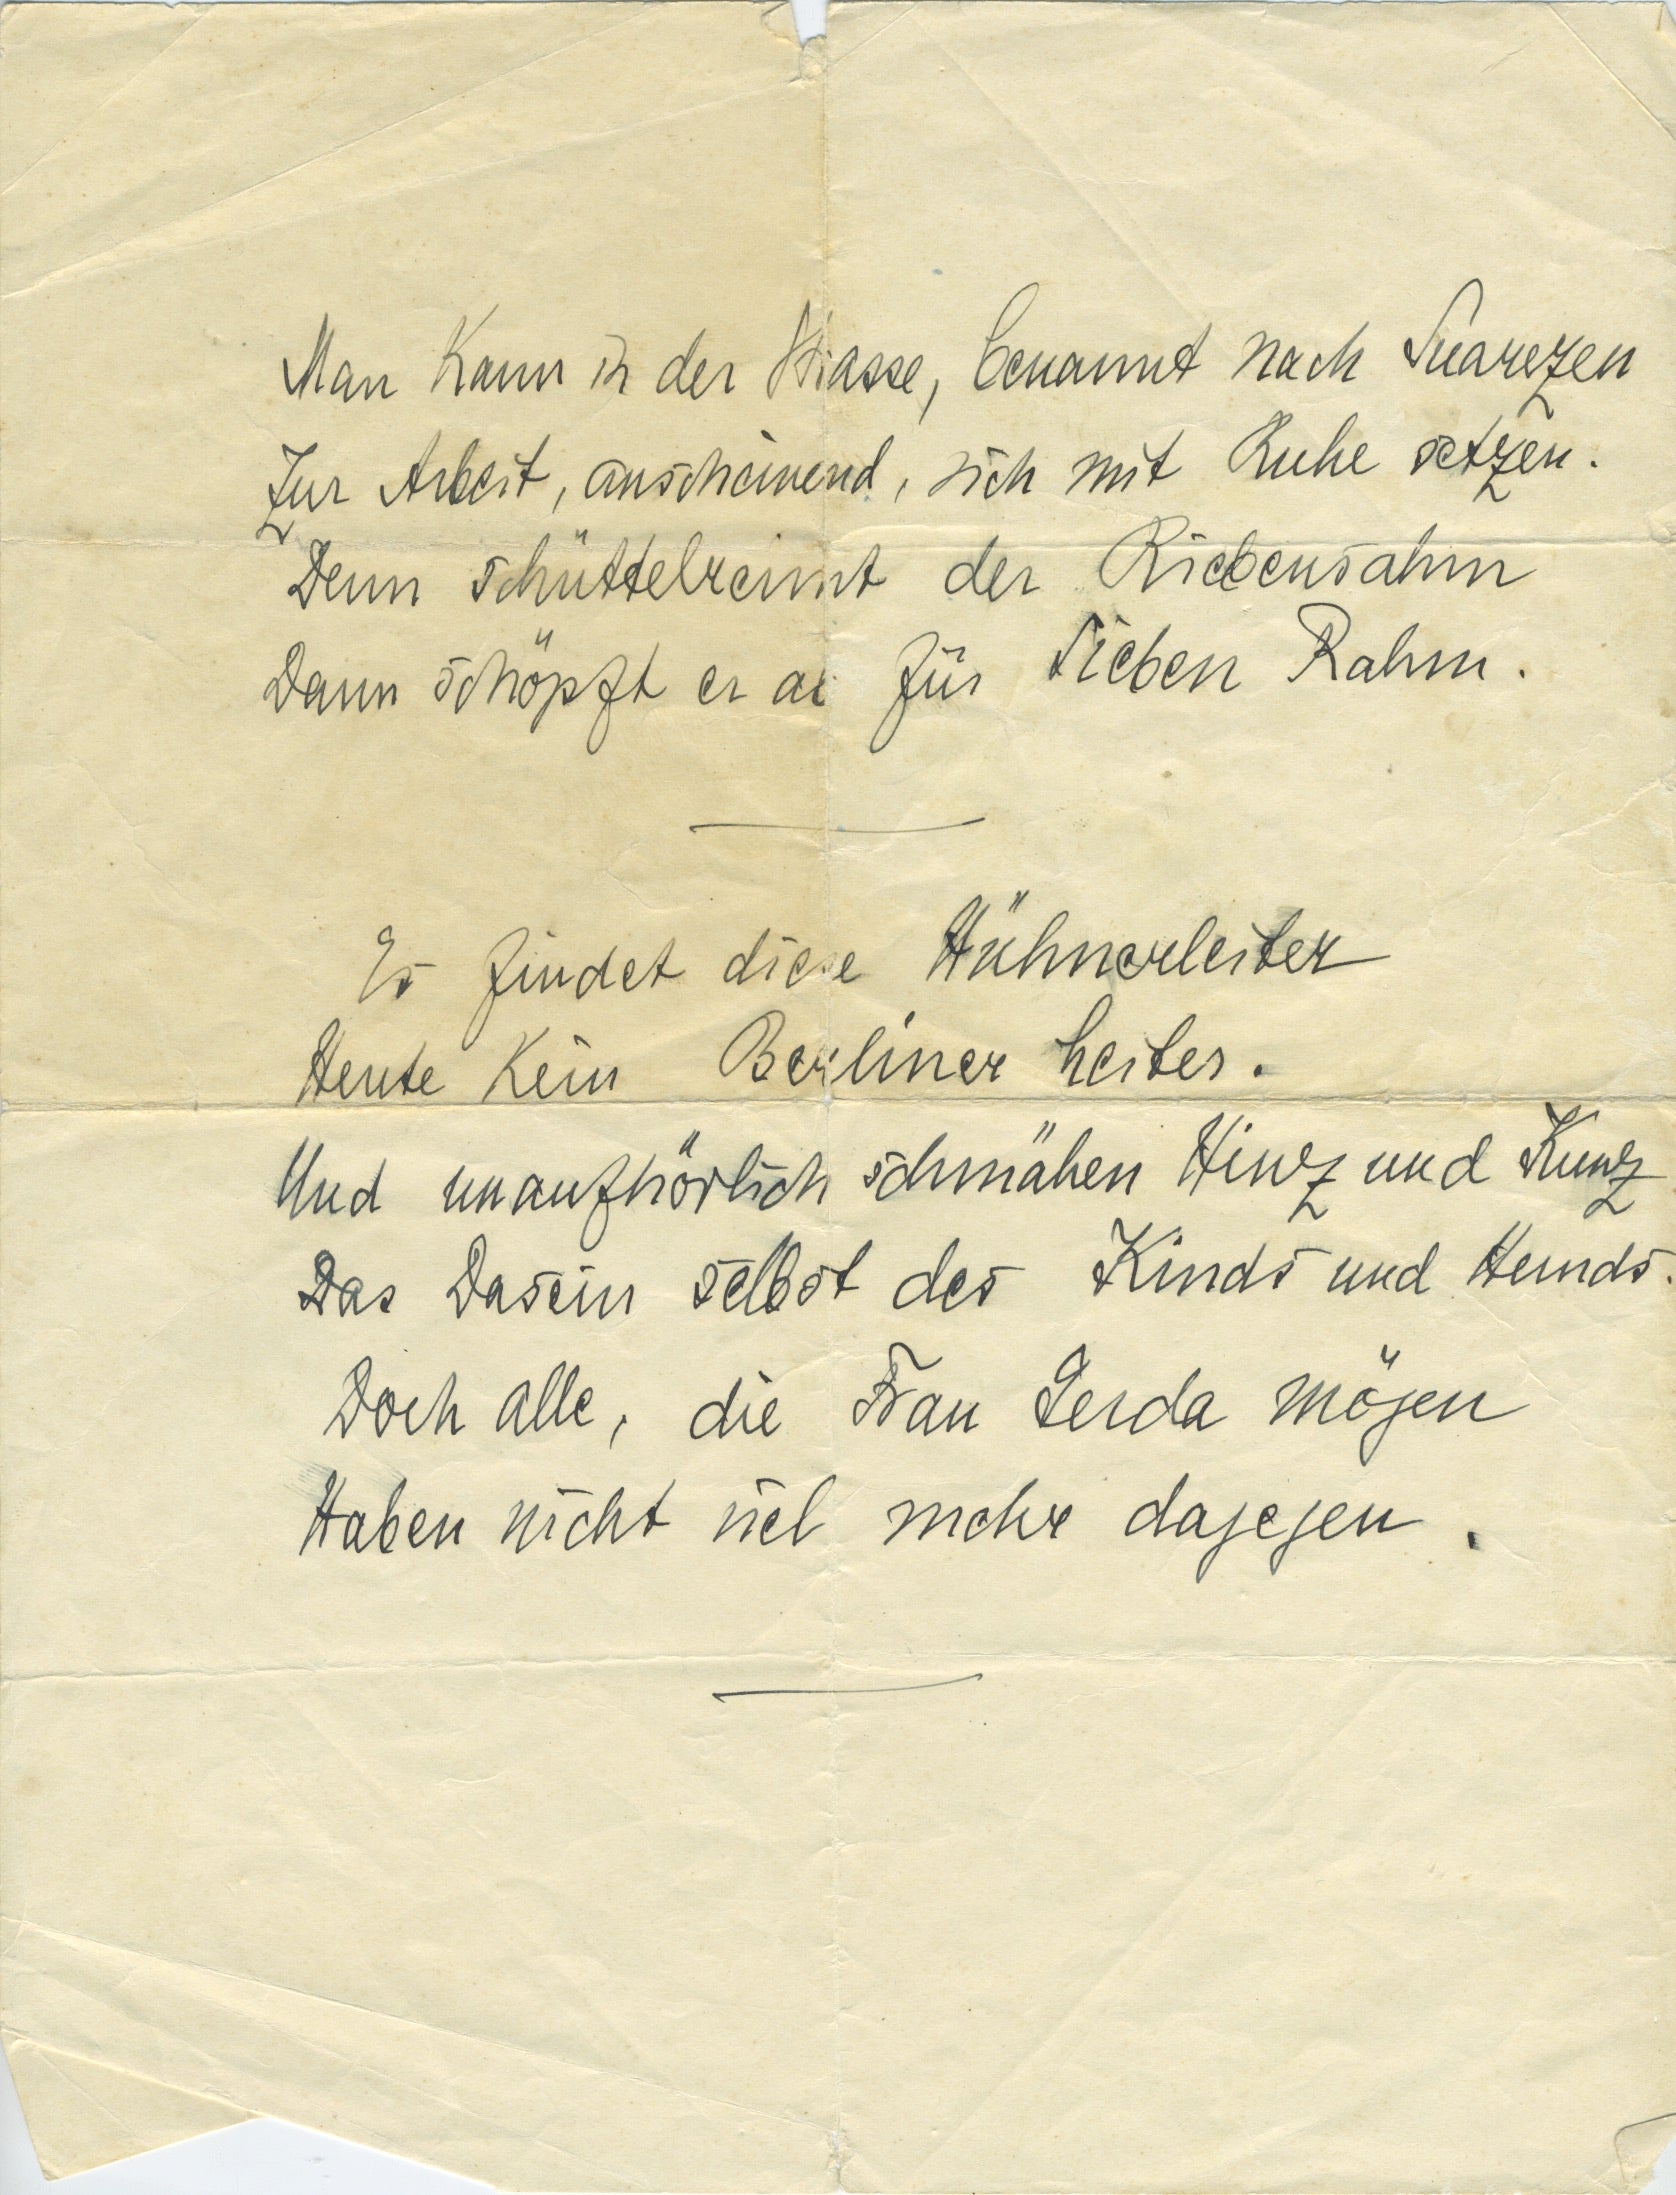 Man kann in der Strasse, benannt nach Suarezen
Zur Arbeit, anscheinend, sich mit Ruhe setzen.
Denn schüttelreimt der Riebensahm
Dann schöpft er ab für Sieben Rahm.
Es findet diese Hühnerleiter
Heute kein Berliner heiter.
Und unaufhörlich schmähen Hinz und Kunz
Das Dasein selbst des Kinds und Hunds.
Doch alle, die Frau Gerda mögen
Haben nicht viel mehr dagegen.